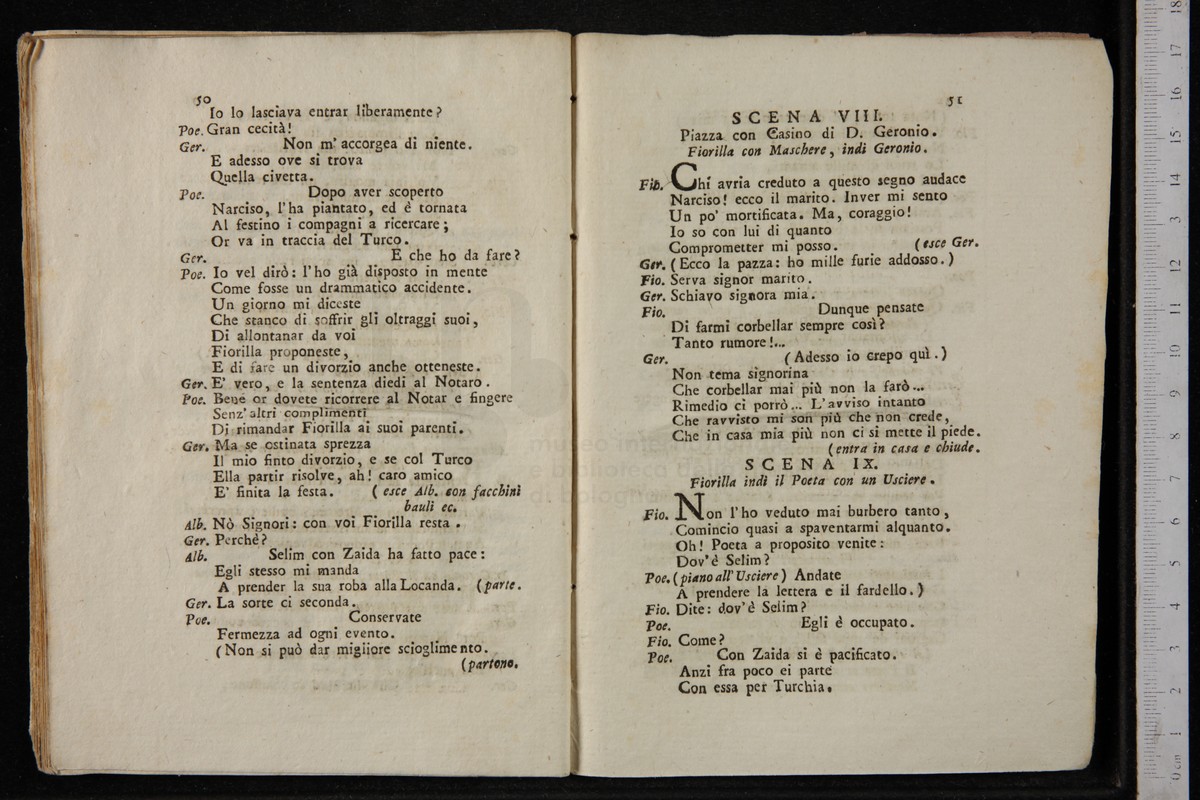 50
Io lo lasciava entrar liberamente?
Poe. Gran cecità!
Ger. Non m' accorgea di niente.
E adesso ove si trova
Quella civetta.
Poe. Dopo aver scoperto
Narciso, l'ha piantato, ed è tornata
Al festino i compagni a ricercare;
Or va in traccia del Turco.
Ger. E che ho da fare?
Poe. Io vel dirò: l'ho già disposto in mente
Come fosse un drammatico accidente.
Un giorno mi diceste
Che stanco di soffrir gli oltraggi suoi,
Di allontanar da voi
Fiorilla proponeste,
E di fare un divorzio anche otteneste.
Ger. E' vero, e la sentenza diedi al Notaro.
Poe. Bene or dovete ricorrere al Notar e fingere
Senz' altri complimenti
Di rimandar Fiorilla ai suoi parenti.
Ger. Ma se ostinata sprezza
Il mio finto divorzio, e se col Turco
Ella partir risolve, ah! caro amico
E' finita la festa. (esce Alb. con facchini
bauli ec.
Alb. Nò Signori: con voi Fiorilla resta.
Ger. Perchè?
Alb. Selim con Zaida ha fatto pace:
Egli stesso mi manda
A prender la sua roba alla Locanda. (parte.
Ger. La sorte ci seconda.
Poe. Conservate
Fermezza ad ogni evento.
(Non si può dar migliore scioglimento.
(partono.
51
SCENA VIII.
Piazza con Casino di D. Geronio.
Fiorilla con Maschere, indi Geronio.
Fio. Chi avria creduto a questo segno audace
Narciso! ecco il marito. Inver mi sento
Un po' mortificata. Ma, coraggio!
Io so con lui di quanto
Comprometter mi posso. (esce Ger.
Ger. (Ecco la pazza: ho mille furie addosso.)
Fio. Serva signor marito.
Ger. Schiavo signora mia.
Fio. Dunque pensate
Di farmi corbellar sempre così?
Tanto rumore!...
Ger. (Adesso io crepo quì.)
Non tema signorina
Che corbellar mai più non la farò...
Rimedio ci porrò... L'avviso intanto
Che ravvisto mi son più che non crede,
Che in casa mia più non ci si mette il piede.
(entra in casa e chiude.
SCENA IX.
Fiorilla indi il Poeta con un Usciere.
Fio. Non l'ho veduto mai burbero tanto,
Comincio quasi a spaventarmi alquanto.
Oh! Poeta a proposito venite:
Dov'è Selim?
Poe. (piano all' Usciere) Andate
A prendere la lettera e il fardello.)
Fio. Dite: dov'è Selim?
Poe. Egli è occupato.
Fio. Come?
Poe. Con Zaida si è pacificato.
Anzi fra poco ei parte
Con essa per Turchia.